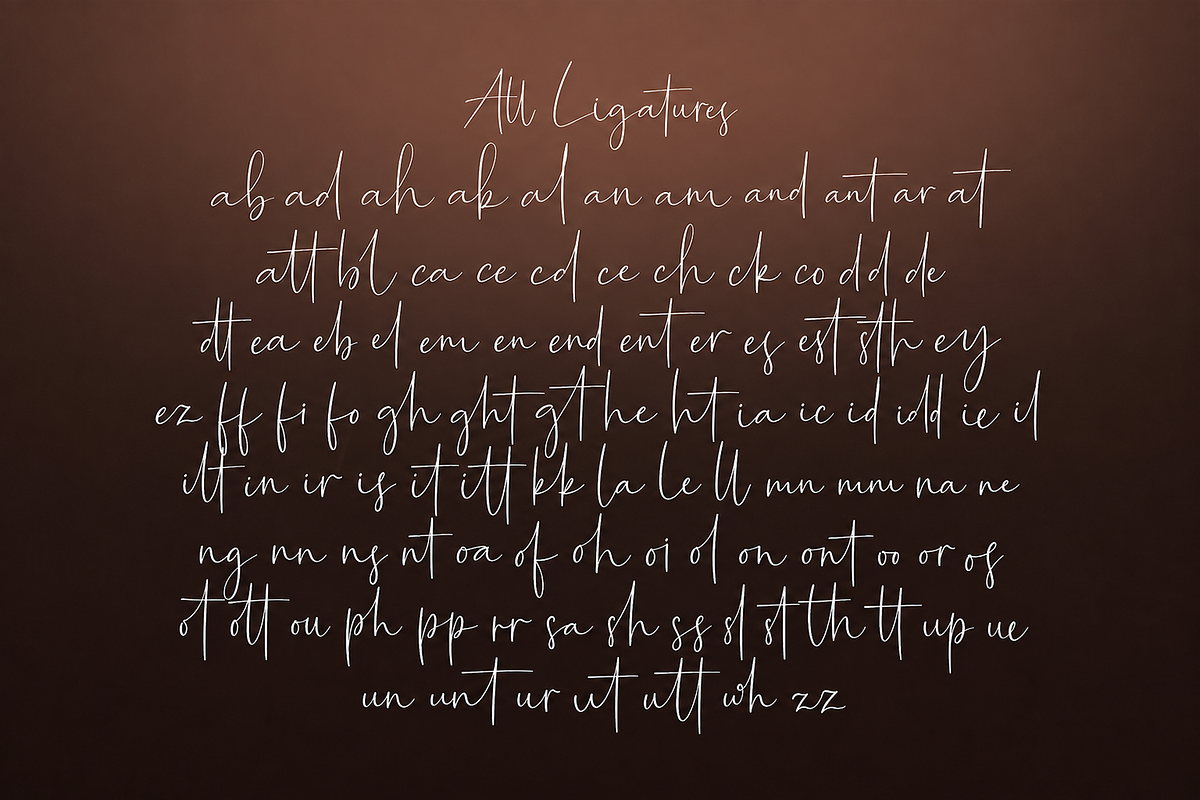 All Ligatures
ab ad ah ak al an am and ant ar at
att bl ca ce cd ce ch ck co dd de
dt ea eb el em en end ent er es est sth ey
ez ff fi fo gh ght gt he ht ia ic id idd ie il
ilt in ir is it itt kk la le ll mn mm na ne
ng nn ns nt oa of oh oi ol on ont oo or os
ot ott ou ph pp rr sa sh ss sl st th tt up ue
un unt ur ut utt wh zz